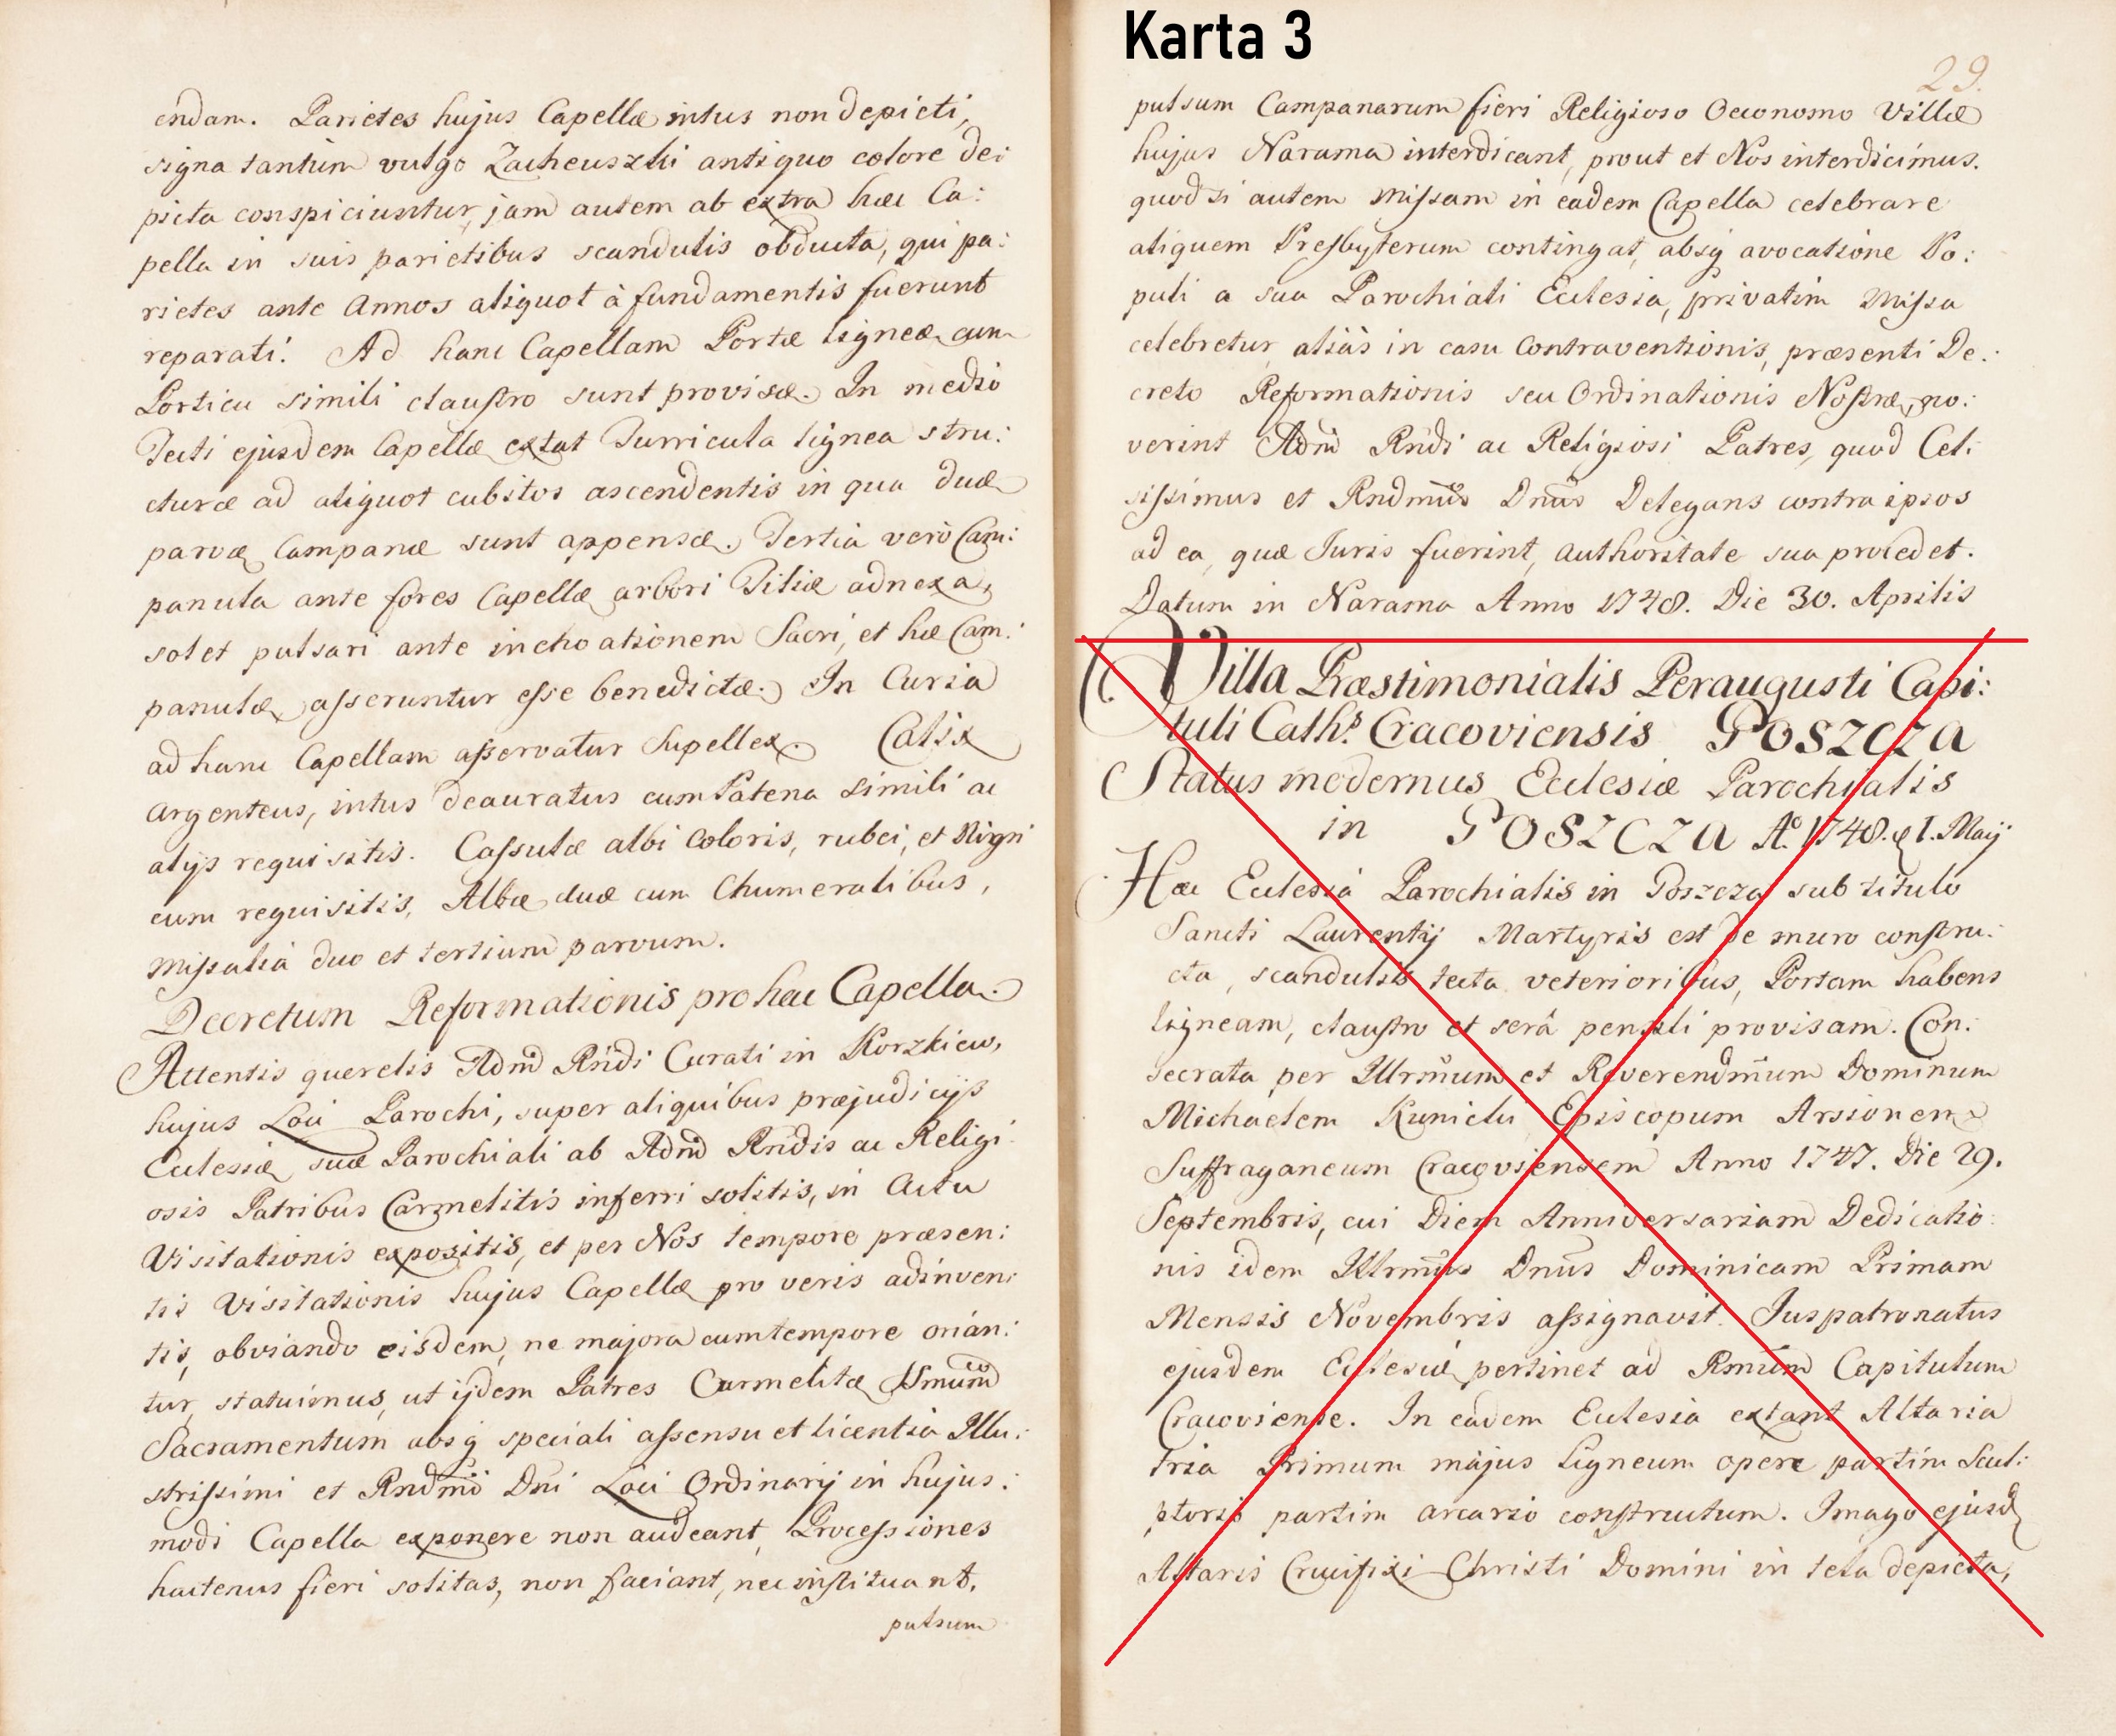 endam. Parietes hujus Capellæ intus non depicti,
signa tantùm vulgo Zacheuszki antiquo colore de:
picta conspiciuntur, jam autem ab extra hæc Ca:
pella in suis parietibus scandulis obducta, qui pa:
rietes ante Annos aliquot à fundamentis fuerunt
reparati. Ad hanc Capellam Portæ ligneæ cum
Porticu simili claustro sunt provisæ. In medio
Tecti ejusdem Capellæ extat Turricula lignea stru:
cturæ ad aliquot cubitos ascendentis in qua duæ
parvæ Campanæ sunt appensæ. Tertia verò Cam:
panula ante fores Capellæ arbori Tiliæ adnexa,
solet pulsari ante inchoationem Sacri, et hæ Cam:
panulæ asseruntur esse benedictæ. In Curia
ad hanc Capellam asservatur Supellex. Calix
Argenteus, intus deauratus cum Patena simili ac
alijs requisitis. Cassulæ albi Coloris, rubei, et Nigri
cum requisitis, Albæ duæ cum Chumeralibus,
Missalia duo et tertium parvum.
Decretum Reformationis pro hac Capella.
Attentis querelis Admd Rndi Curati in Korzkiew,
hujus Loci Parochi, super aliquibus præjudicijs
Eclesiæ suæ Parochiali ab Admd Rndis ac Religi
osis Patribus Carmelitis inferri solitis, in Actu
Visitationis expositis, et per Nos tempore præsen:
tis Visitationis hujus Capellæ pro veris adinven:
tis, obviando eisdem, ne majora cum tempore orian:
tur, statuimus, ut ijdem Patres Carmelitæ SSmum
Sacramentum absq speciali assensu et licentia Illu:
strissimi et Rndmi Dni Loci Ordinarij in hujus:
modi Capella exponere non audeant, Processiones
hactenus fieri solitas, non faciant, nec instituant.
pulsum
Karta 3
29.
pulsum Campanarum fieri Religioso Oeconomo Villæ
hujus Narama interdicant, prout et Nos interdicimus.
quod si autem Missam in eadem Capella celebrare
aliquem Presbyterum contingat, absq avocatione Po:
puli a sua Parochiali Eclesia, privatim Missa
celebretur, aliàs in casu Contraventionis, præsenti De:
creto Reformationis seu Ordinationis Nostræ, no:
verint Admd Rndi ac Religiosi Patres, quod Cel:
sissimus et Rndmus Dnus Delegans contra ipsos
ad ea, quæ Juris fuerint, authoritate sua procedet.
Datum in Narama Anno 1748. Die 30. Aprilis
Villa Præstimonialis Peraugusti Capi:
tuli Cathis Cracoviensis POSZCZA
Status modernus Eclesiæ Parochialis
in POSZCZA Ao 1748. 1. Maij
Hæc Eclesia Parochialis in Poszcza sub titulo
Sancti Laurentij Martyris est de muro constru:
cta, scandulis tecta veterioribus, Portam habens
ligneam, claustro et serâ pensili provisam. Con:
secrata per Illrmum et Reverendmum Dominum
Michaelem Kunicki Episcopum Arsionen
Suffraganeum Cracoviensem Anno 1747. Die 29.
Septembris, cui Diem Anniversariam Dedicatio:
nis idem Illrmus Dnus Dominicam Primam
Mensis Novembris assignavit. Juspatronatus
ejusdem Eclesiæ pertinet ad Rmum Capitulum
Cracoviense. In eadem Eclesia extant Altaria
tria Primum majus Ligneum opere partim Scul:
ptorio partim arcario constructum. Imago ejusd
Altaris Crucifixi Christi Domini in tela depicta,